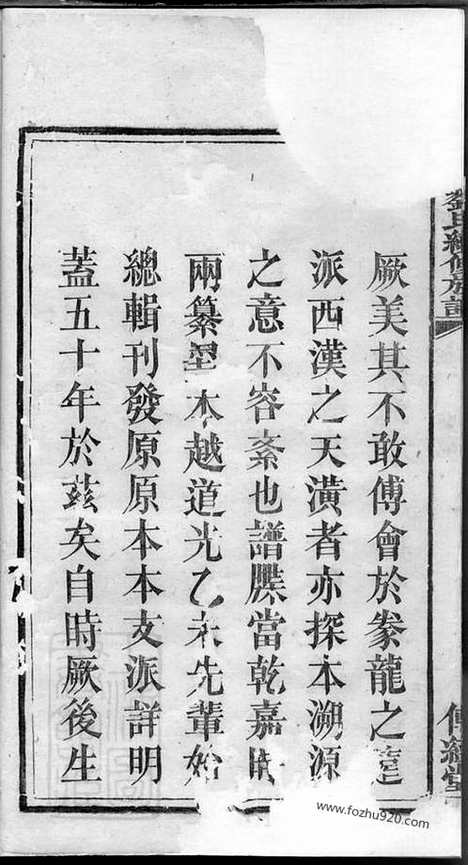 劉氏續修族譜
傳經堂
厥美其不敢傅會於豢龍之
派西漢之天潢者亦探本溯源
之意不容紊也譜牒當乾嘉時
兩纂未越道光乙未先輩始
總輯刊發原原本本支派詳明
蓋五十年於茲矣自時厥後生
www.fozhu920.com